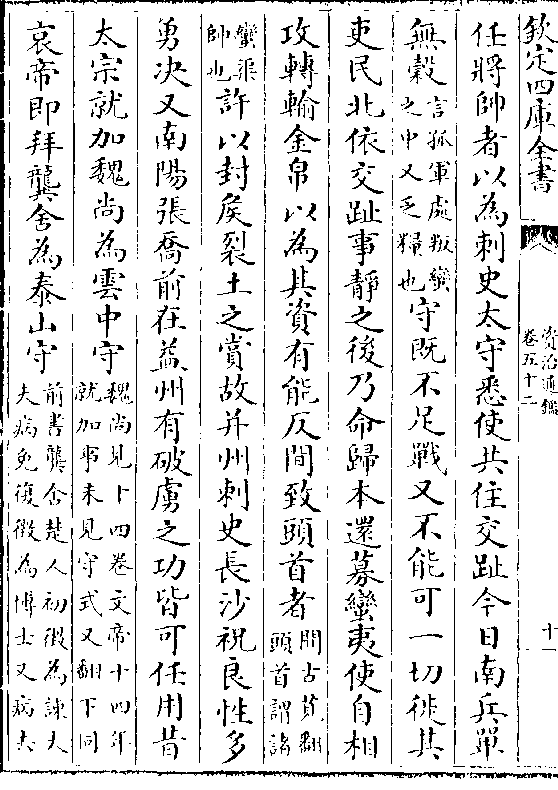 欽定四庫全書
資治通鑑
卷五十二
十一
任將帥者以為刺史太守悉使共住交趾今日南兵單
無穀言孤軍處叛蠻之中又乏糧也守既不足戰又不能可一切徙其
吏民北依交趾事靜之後乃命歸本還募蠻夷使自相
攻轉輸金帛以為其資有能反間致頭首者間古莧翻頭首謂諸
蠻渠帥也許以封矦裂土之賞故并州刺史長沙祝良性多
勇決又南陽張喬前在益州有破虜之功皆可任用昔
太宗就加魏尚為雲中守魏尚見十四卷文帝十四年就加事未見守式又翻下同
哀帝即拜龔舍為泰山守前書龔舍楚人初徵為諫大夫病免復徵為博士又病去